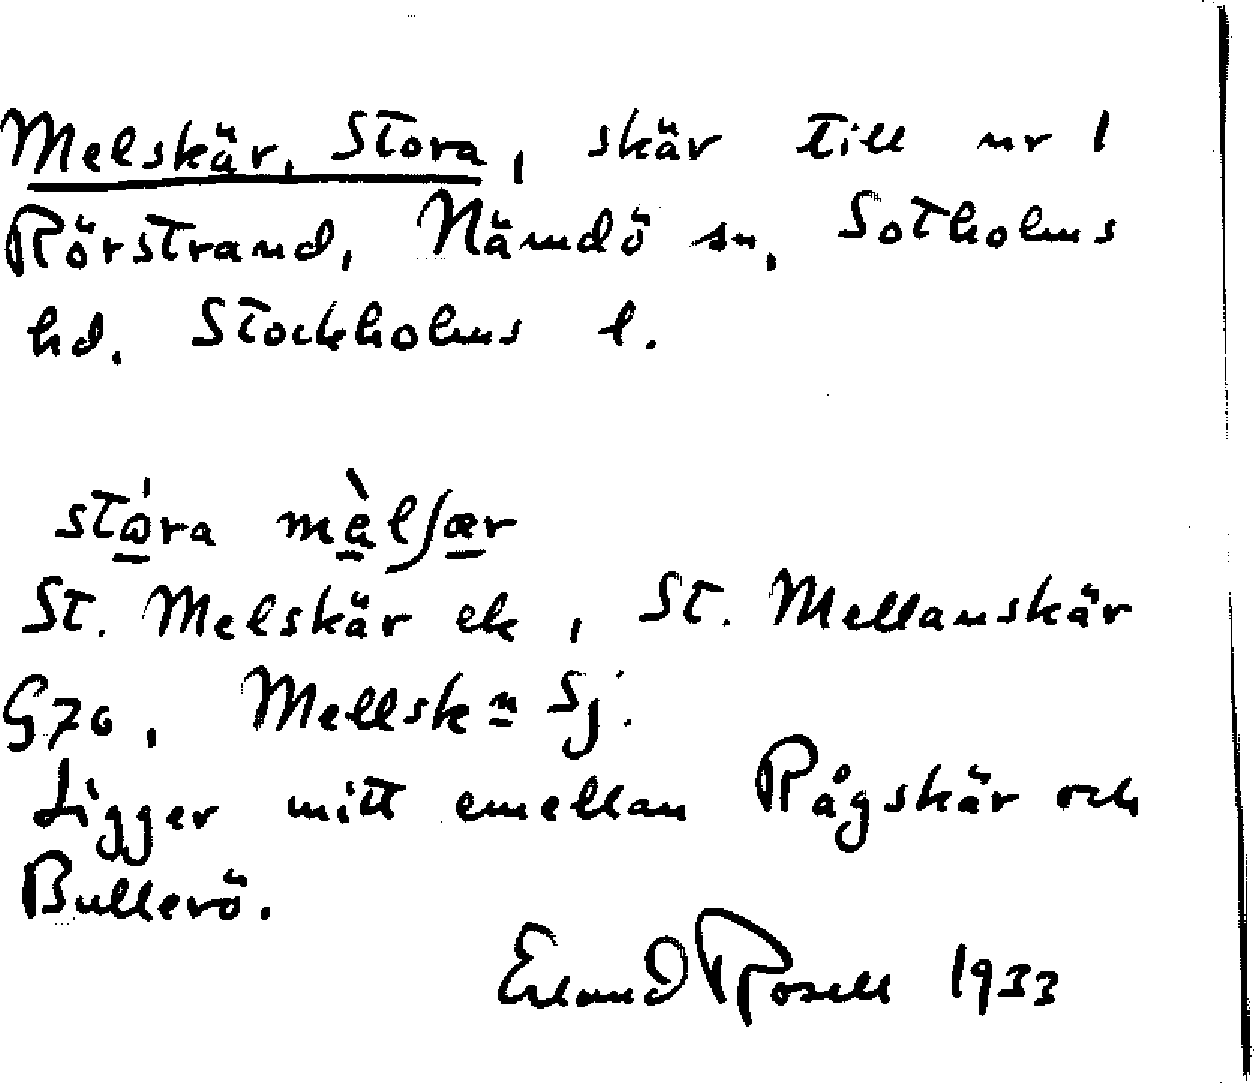 Melskär, Stora, skär till nr 1
Rörstrand, Nämdö sn, Sotholms
hd. Stockholms l.
stώra mèlʃær
St. Melskär ek, St. Mellanskär
G70, Mellsk n Sj.
Ligger mitt emellan Rågskär och
Bullerö.
Erland Rosell 1933